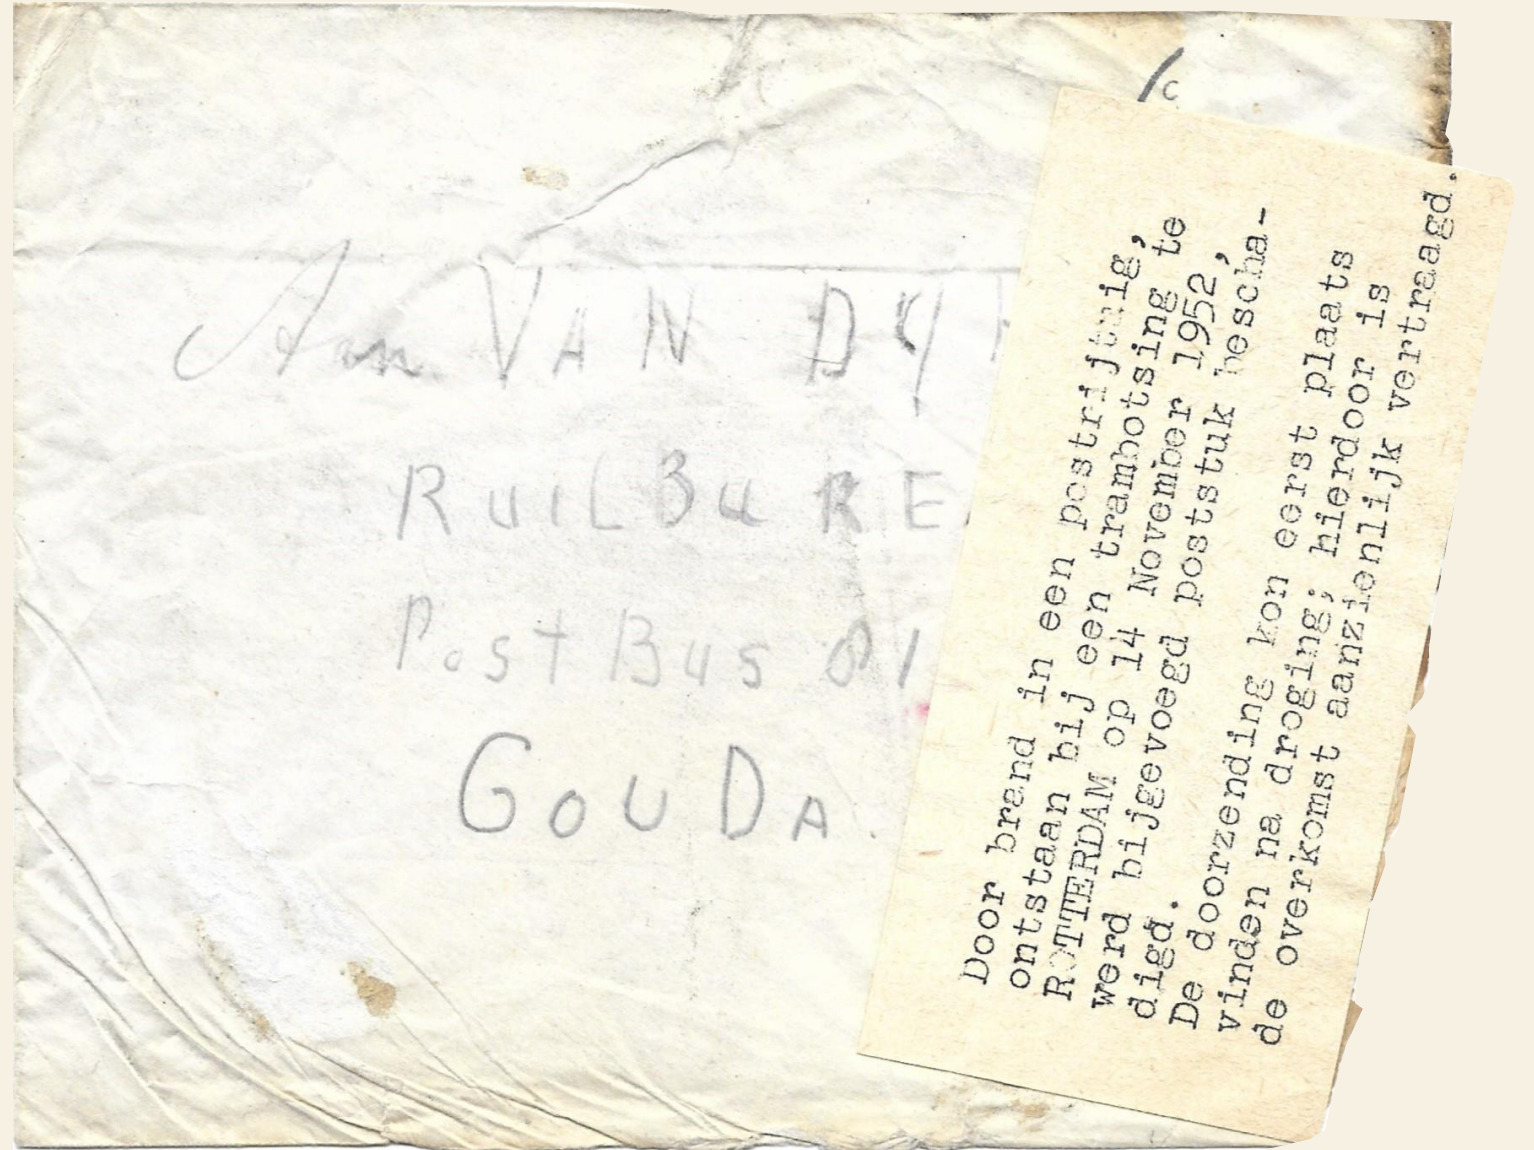 Aan VAN DY
RUILBURE
PostBus 81
GOUDA.
Door brand in een postrijtuig,
ontstaan bij een trambotsing te
ROTTERDAM op 14 November 1952,
werd bijgevoegd poststuk bescha-
digd.
De doorzending kon eerst plaats
vinden na droging; hierdoor is
de overkomst aanzienlijk vertraagd.